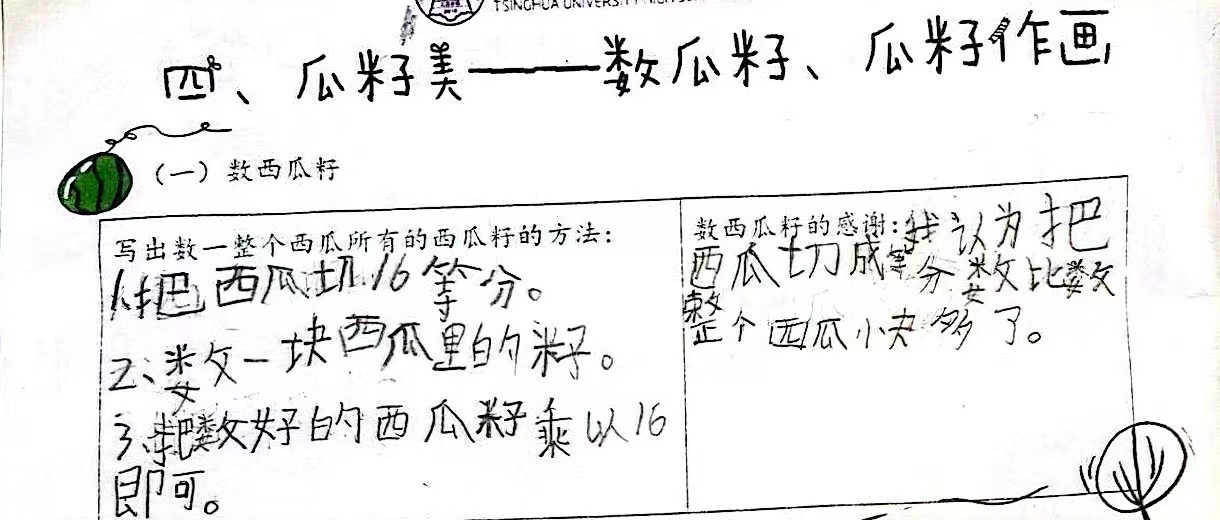 TSINGHUA UNIVERSITY HIGH
四、瓜籽美——数瓜籽、瓜籽作画
（一）数西瓜籽
写出数一整个西瓜所有的西瓜籽的方法：
1、把西瓜切16等分。
2、数一块西瓜里的籽。
3、把数好的西瓜籽乘以16
即可。
数西瓜籽的感谢：我认为把
西瓜切成等分数比数
整个西瓜小夬多了。